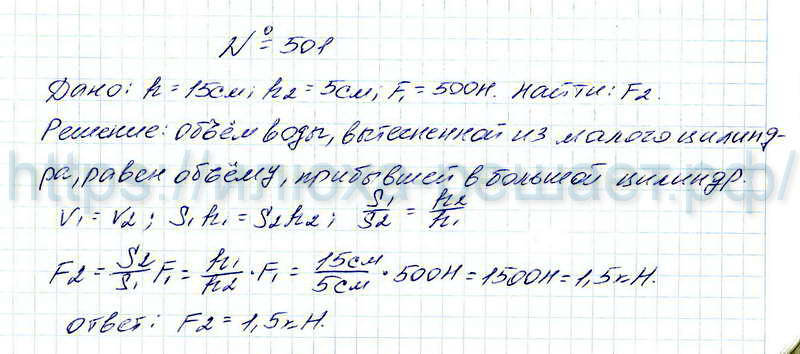 № 501
Дано: h = 15см; h2 = 5см; F1 = 500Н. Найти: F2.
Решение: объём воды, вытесненной из малого цилинд-
ра, равен объёму, прибывшей в большой цилиндр.
V1 = V2; S1h1 = S2h2; S1/S2 = h2/h1
F2 = S2/S1 F1 = h1/h2 · F1 = 15см/5см · 500Н = 1500Н = 1,5кН.
ответ: F2 = 1,5кН.